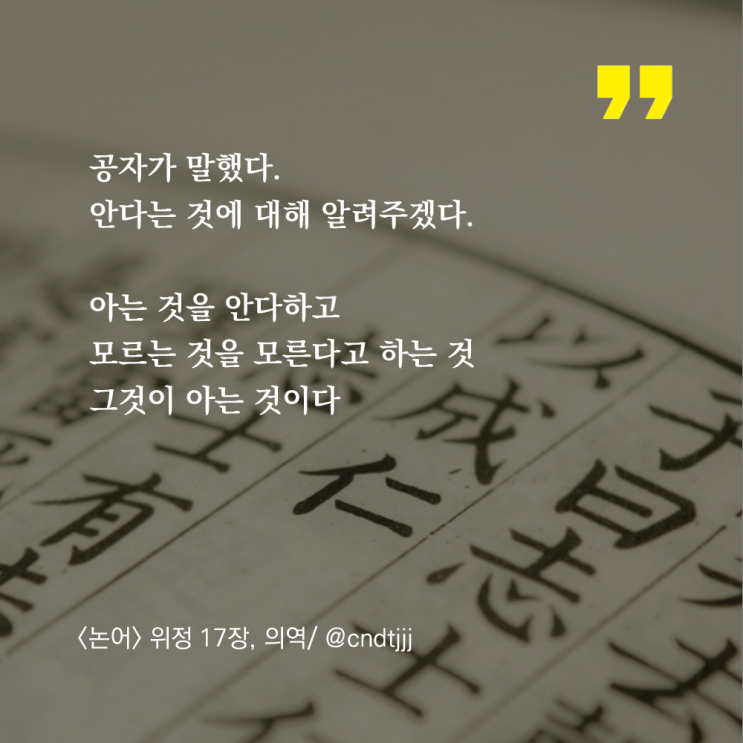 ”
공자가 말했다.
안다는 것에 대해 알려주겠다.
아는 것을 안다하고
모르는 것을 모른다고 하는 것
그것이 아는 것이다
子曰志士
以成仁
士有
<논어> 위정 17장, 의역/ @cndtjjj